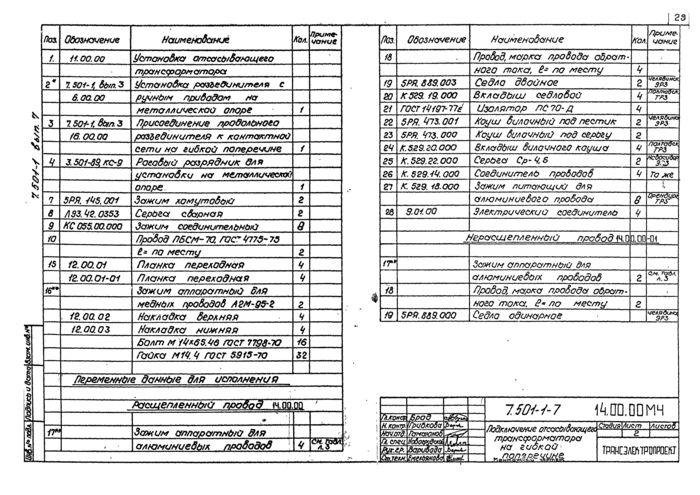 23
Поз. Обозначение Наименование Кол. Приме-чание
1. 11.00.00 Установка отсасывающего
трансформатора
2* 7.501-1, вып.3 Установка разъединителя с
6.00.00 ручным приводом на
металлической опоре 1
3 7.501-1, вып.3 Присоединение продольного
16.00.00 разъединителя к контактной
сети на гибкой поперечине 1
4 3.501-89, КС-9 Роговый разрядник для
установки на металлической
опоре. 1
7 5РЯ.145.001 Зажим хомутовый 2
8 Л93.42.0353 Серьга сварная 2
9 КС 055.00.000 Зажим соединительный 8
10 Провод ПБСМ-70, ГОСТ 4775-75
ℓ= по месту 2
15 12.00.01 Планка переходная 4
12.00.01-01 Планка переходная 4
16** Зажим аппаратный для
медных проводов А2М-95-2 2
12.00.02 Накладка верхняя 4
12.00.03 Накладка нижняя 4
Болт М14×65.46 ГОСТ 7798-70 16
Гайка М14.4 ГОСТ 5915-70 32
Переменные данные для исполнения
Расщепленный провод 14.00.00
17** Зажим аппаратный для
алюминиевых проводов 4 См. табл. л.3
7.501-1 вып. 7
Инв.№ подл. Подпись и дата Взам.инв.№
Поз. Обозначение Наименование Кол. Приме-чание
18 Провод, марка провода обрат-
ного тока, ℓ= по месту 4
19 5РЯ.889.003 Седло двойное 2 Челябинск. ЭРЗ
20 К529.19.000 Вкладыш седловой 4
21 ГОСТ 14197-77Е Изолятор ПС 70-Д 4
22 5РЯ.473.001 Коуш вилочный под пестик 2
23 5РЯ.473.000 Коуш вилочный под серьгу 2
24 К.529.20.000 Вкладыш вилочного коуша 4
25 К.529.22.000 Серьга Ср-4,5 2
26 К.529.14.000 Соединитель проводов 4 То же
27 К.529.18.000 Зажим питающий для
алюминиевого провода 8
28 9.01.00 Электрический соединитель 4
Нерасщепленный провод 14.00.00-01
17** Зажим аппаратный для
алюминиевых проводов 2 См. табл. л.3
18 Провод, марка провода обрат-
ного тока, ℓ= по месту 2
19 5РЯ.889.000 Седло одинарное 2 Челябинск. ЭРЗ
7.501-1-7 14.00.00МЧ
Подключение отсасывающего
трансформатора
на гибкой
поперечине
Стадия Лист Листов
2
ТРАНСЭЛЕКТРОПРОЕКТ
Н.контр. Грибкова
Нач.отд.
Гл.спец.
Рук.гр.
Ст.техн.